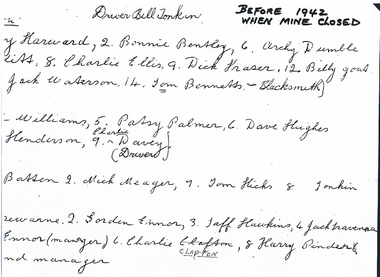 Driver Bell Tonkin
BEFORE 1942
WHEN MINE CLOSED
y Harward, 2. Bonnie Bentley, 6. Archy Dumble
iott, 8. Charlie Ellis, 9. Dick Fraser, 12. Billy goat
Jack Waterson. 14. Tom Bennetts - Blacksmith)
- Williams, 5. Patsy Palmer, 6. Dave Hughes
Charlie
Henderson, 9. - Davey
(Driver)
Batten 2. Mick Meager, 7. Tom Hicks 8 Tonkin
rewarne. 2. Gorden Ennor, 3. Taff Hawkins, 4 Jack
Ennor (manager) 6. Charlie Clapton, 8 Harry Pinder
CLAPTON
nd manager